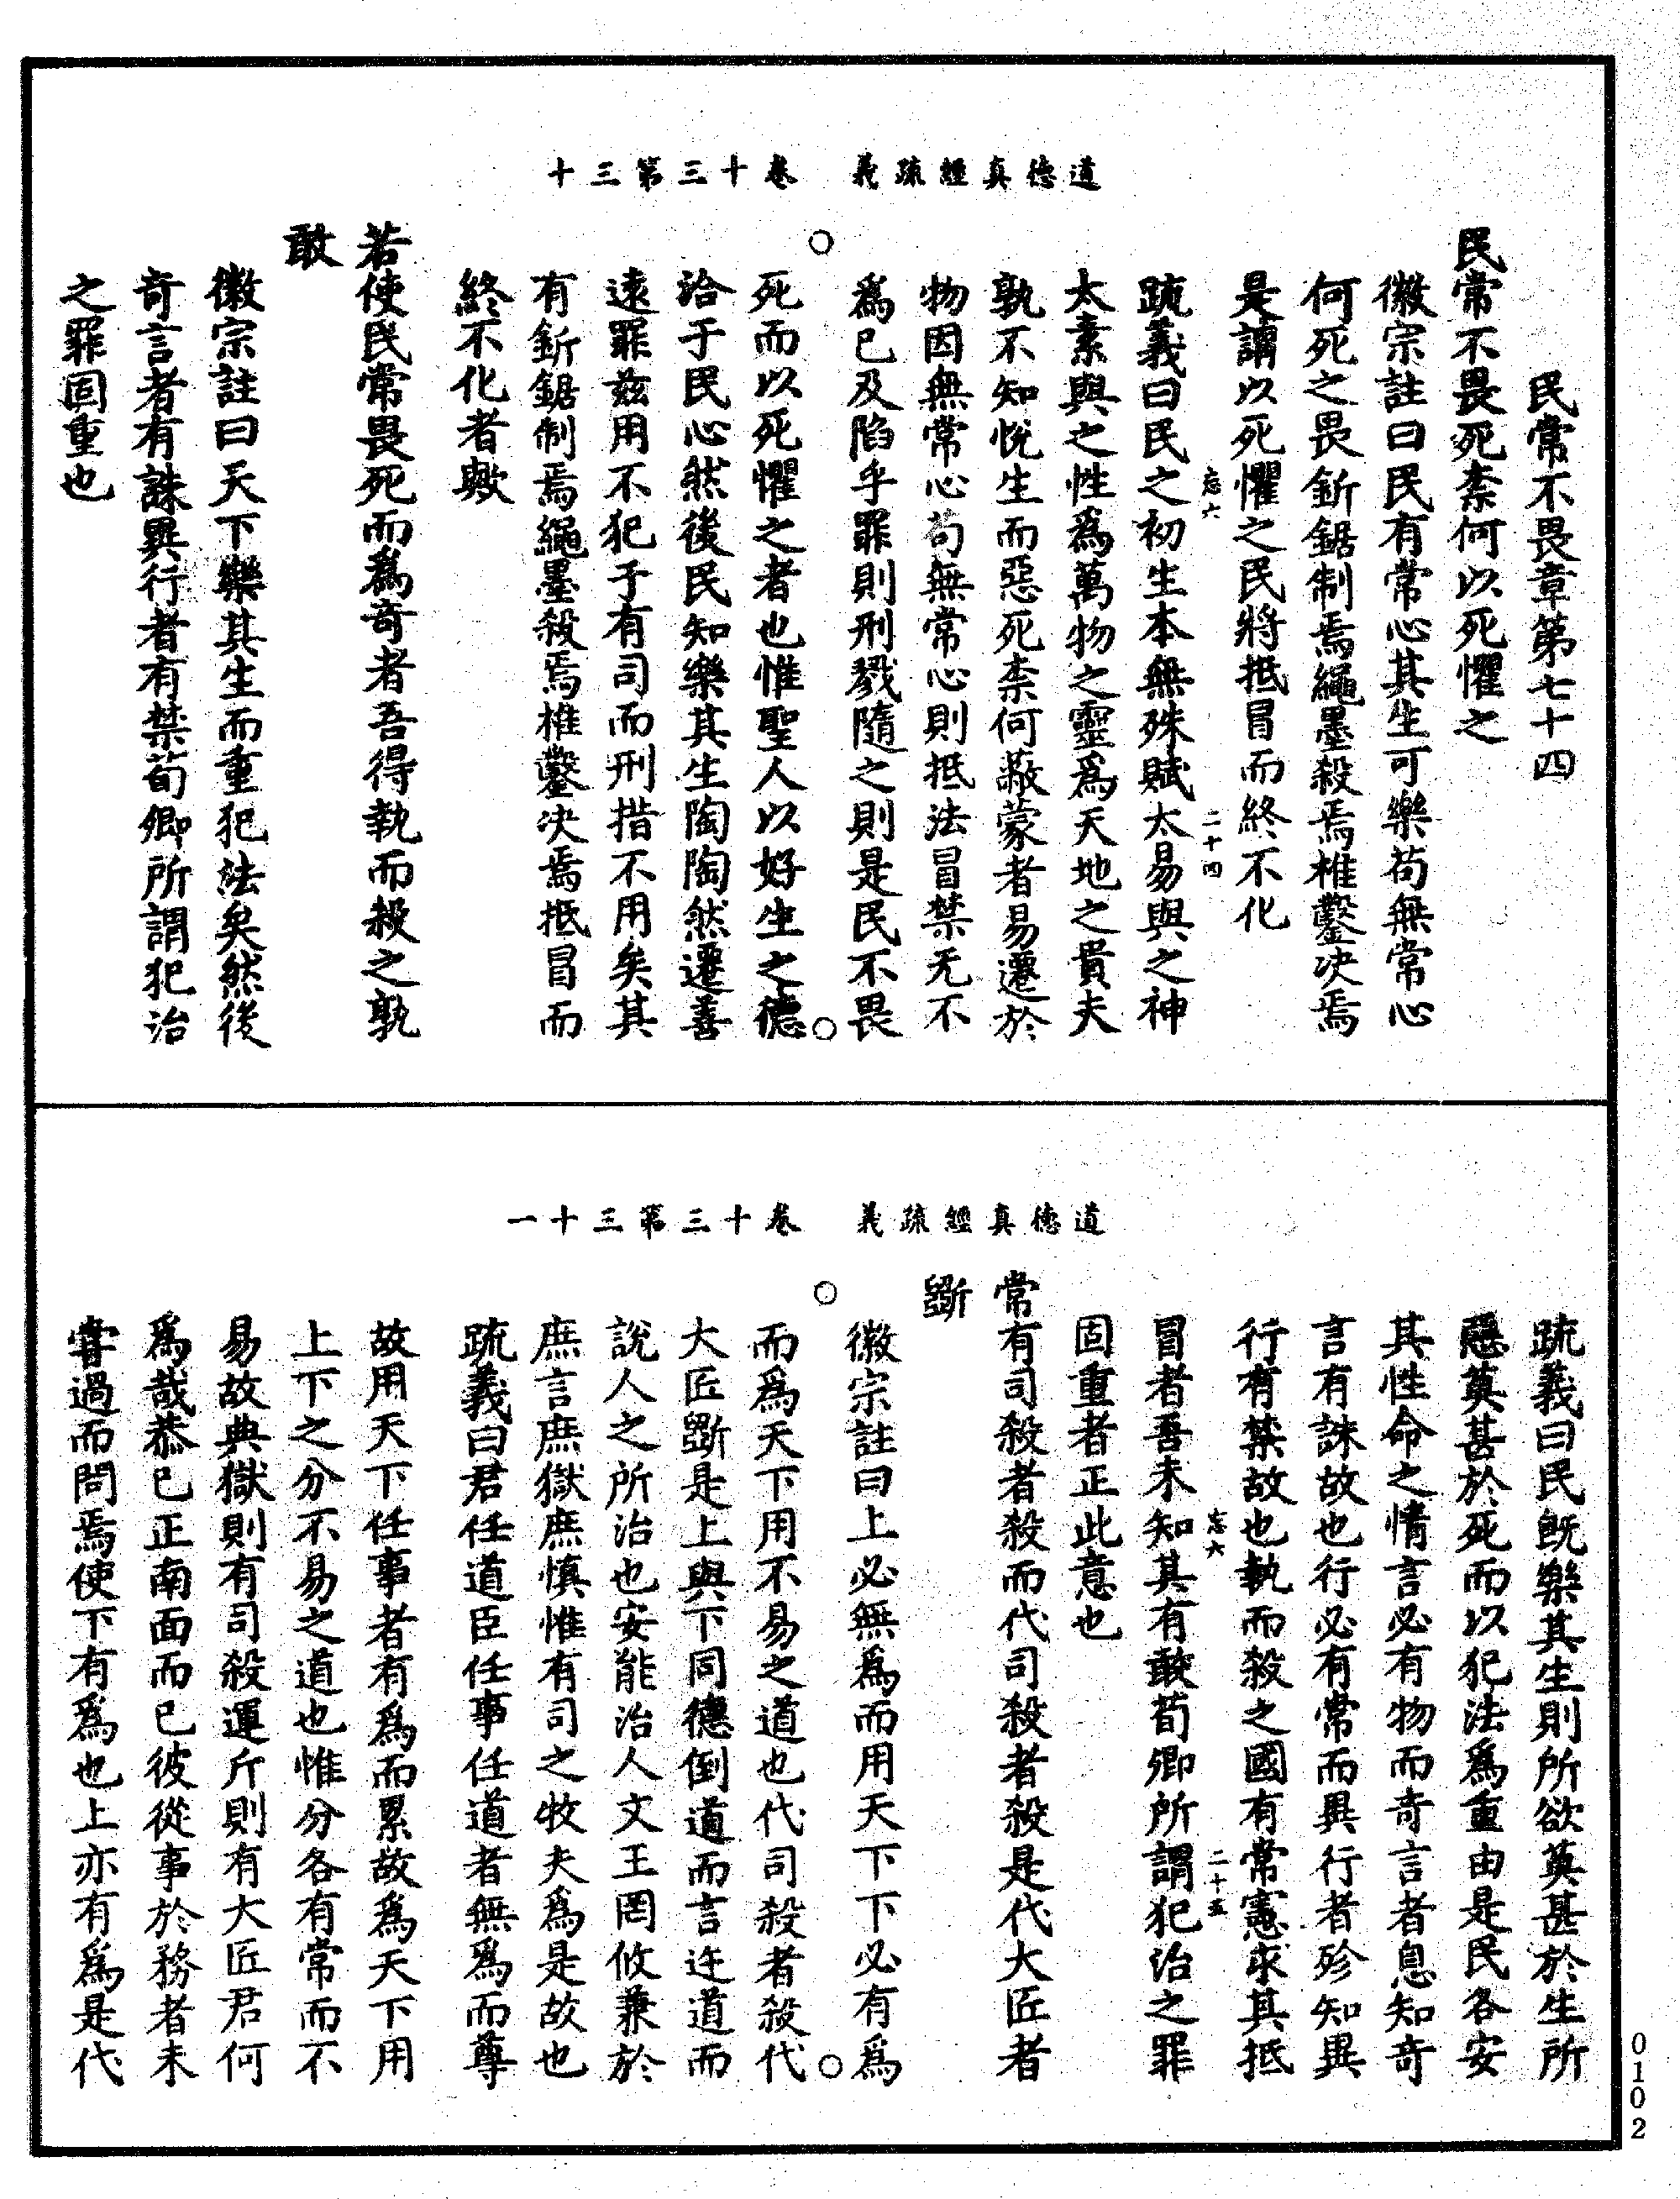 道德真經疏義　卷十三第三十
民常不畏章第七十四
民常不畏死柰何以死懼之
徽宗註曰民有常心其生可樂苟無常心
何死之畏釿鋸制焉繩墨殺焉椎鑿决焉
是謂以死懼之民將抵冒而終不化
忘六　二十四
疏義曰民之初生本無殊賦太易與之神
太素與之性爲萬物之靈爲天地之貴夫
孰不知悅生而惡死柰何蔽蒙者易遷於
物因無常心苟無常心則抵法冒禁无不
爲已及陷乎罪則刑戮隨之則是民不畏
死而以死懼之者也惟聖人以好生之德
洽于民心然後民知樂其生陶陶然遷善
遠罪兹用不犯于有司而刑措不用矣其
有釿鋸制焉繩墨殺焉椎鑿决焉抵冒而
終不化者歟
若使民常畏死而爲奇者吾得執而殺之孰
敢
徽宗註曰天下樂其生而重犯法矣然後
奇言者有誅異行者有禁荀卿所謂犯治
之罪固重也
道德真經疏義　卷十三第三十一
疏義曰民旣樂其生則所欲莫甚於生所
惡莫甚於死而以犯法爲重由是民各安
其性命之情言必有物而奇言者息知奇
言有誅故也行必有常而異行者殄知異
行有禁故也執而殺之國有常憲求其抵
忘六　二十五
冒者吾未知其有敢荀卿所謂犯治之罪
固重者正此意也
常有司殺者殺而代司殺者殺是代大匠者
斵
徽宗註曰上必無爲而用天下下必有爲
而爲天下用不易之道也代司殺者殺代
大匠斵是上與下同德倒道而言迕道而
說人之所治也安能治人文王罔攸兼於
庶言庶獄庶慎惟有司之牧夫爲是故也
疏義曰君任道臣任事任道者無爲而尊
故用天下任事者有爲而累故爲天下用
上下之分不易之道也惟分各有常而不
易故典獄則有司殺運斤則有大匠君何
爲哉恭已正南面而已彼從事於務者未
嘗過而問焉使下有爲也上亦有爲是代
0102